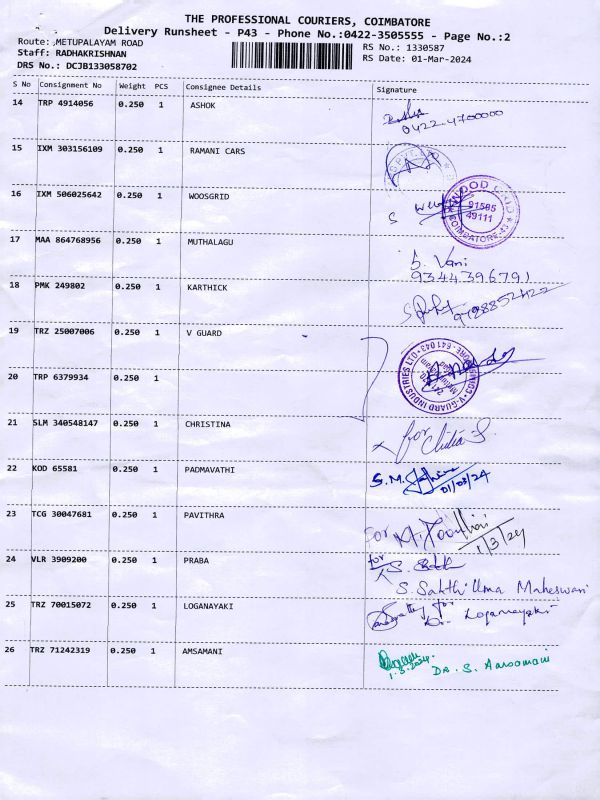 THE PROFESSIONAL COURIERS, COIMBATORE
Delivery Runsheet - P43 - Phone No.:0422-3505555 - Page No.:2
Route: METUPALAYAM ROAD RS No.: 1330587
Staff: RADHAKRISHNAN RS Date: 01-Mar-2024
DRS No.: DCJB133058702
S No Consignment No Weight PCS Consignee Details Signature
14 TRP 4914056 0.250 1 ASHOK
0422-4700000
15 IXM 303156109 0.250 1 RAMANI CARS
16 IXM 506025642 0.250 1 WOOSGRID
WOOD GRID
91505
49111
COIMBATORE-43
17 MAA 864768956 0.250 1 MUTHALAGU
S. Vani
9344396791
18 PMK 249802 0.250 1 KARTHICK
19 TRZ 25007006 0.250 1 V GUARD
V-GUARD INDUSTRIES LTD
641043
20 TRP 6379934 0.250 1
21 SLM 340548147 0.250 1 CHRISTINA
for
22 KOD 65581 0.250 1 PADMAVATHI
S.M.
01/03/24
23 TCG 30047681 0.250 1 PAVITHRA
For
1/3/24
24 VLR 3909200 0.250 1 PRABA
for
S. Sakthi Uma Maheswari
25 TRZ 70015072 0.250 1 LOGANAYAKI
for
Loganayaki
26 TRZ 71242319 0.250 1 AMSAMANI
1.3.2024
DR. S. Amsamani